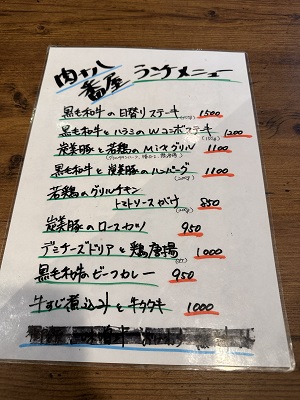 肉十八
番屋 ランチメニュー
黒毛和牛の日替りステーキ 1500
黒毛和牛とハラミのWコンボステーキ 1200
炭美豚と若鶏のMixグリル 1100
黒毛和牛と炭美豚のハンバーグ 1100
若鶏のグリルチキン
トマトソースがけ 850
炭美豚のロースカツ 950
デミチーズドリアと鶏唐揚 1000
黒毛和牛ビーフカレー 950
牛すじ煮込みと牛タタキ 1000